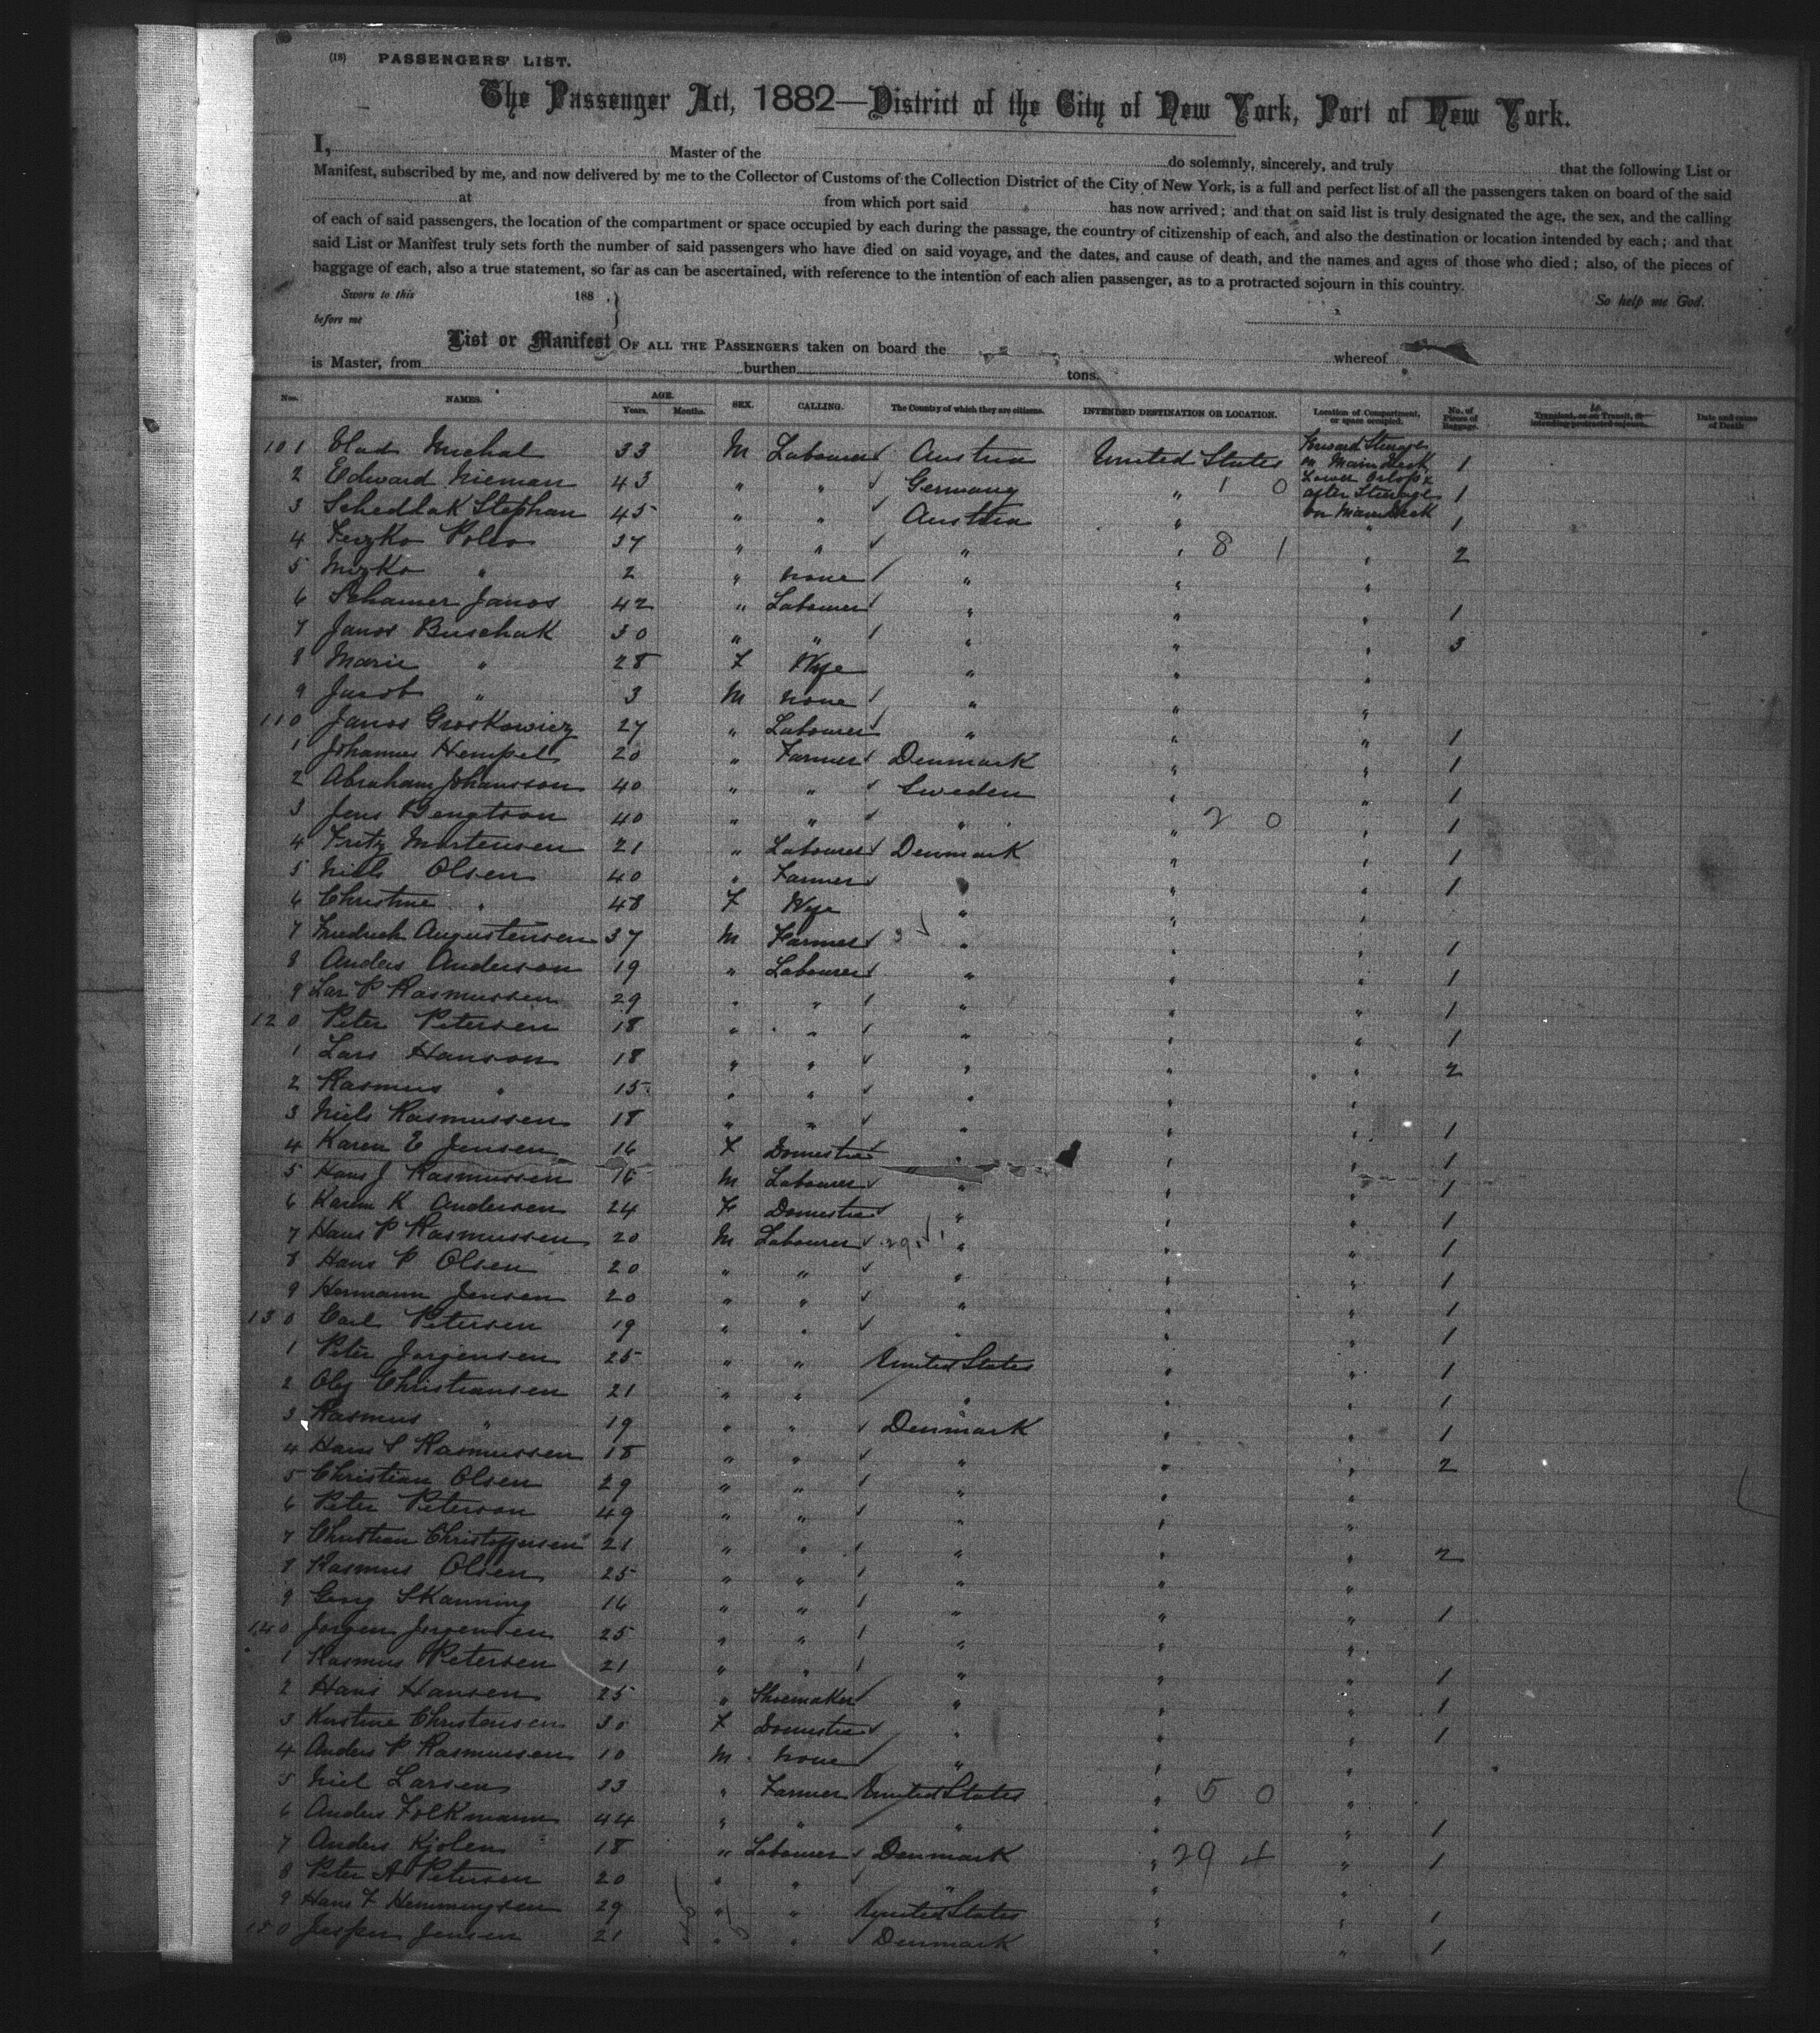 (18) PASSENGERS' LIST.
The Passenger Act, 1882—District of the City of New York, Port of New York.
I, Master of the do solemnly, sincerely, and truly that the following List or
Manifest, subscribed by me, and now delivered by me to the Collector of Customs of the Collection District of the City of New York, is a full and perfect list of all the passengers taken on board of the said
at from which port said has now arrived; and that on said list is truly designated the age, the sex, and the calling
of each of said passengers, the location of the compartment or space occupied by each during the passage, the country of citizenship of each, and also the destination or location intended by each; and that
said List or Manifest truly sets forth the number of said passengers who have died on said voyage, and the dates, and cause of death, and the names and ages of those who died; also, of the pieces of
baggage of each, also a true statement, so far as can be ascertained, with reference to the intention of each alien passenger, as to a protracted sojourn in this country.
Sworn to this 188 So help me God.
before me
List or Manifest OF ALL THE PASSENGERS taken on board the whereof
is Master, from burthen tons.
Nos. NAMES. AGE. Years. Months. SEX. CALLING. The Country of which they are citizens. INTENDED DESTINATION OR LOCATION. Location of Compartment, or space occupied. No. of Pieces of Baggage. Date and cause of Death
101 Michal 33 M Labourer Austria United States Forward Steerage on Main Deck 1
2 Edward Nieman 43 " " Germany " 1 0 Lower Orlop & after Steerage on Main deck 1
3 Schedlak Stephan 45 " " Austria " " 1
4 37 " " " " 8 1 " 2
5 " 2 " none " " "
6 Janos 42 " Labourer " " " 1
7 Janos Buschak 30 " " " " " 3
8 Marie " 28 F Wife " " "
9 Jacob " 3 M none " " "
110 Janos Groskowicz 27 " Labourer " " " 1
1 Johannes Hempel 20 " Farmer Denmark " " 1
2 Abraham Johansson 40 " " Sweden " " 1
3 Jens Bengtson 40 " " " " 2 0 " 1
4 Fritz Mortensen 21 " Labourer Denmark " " 1
5 Niels Olsen 40 " Farmer " " " 1
6 Christine " 48 F Wife " " "
7 Friedrich Augustensen 37 M Farmer " " " 1
8 Anders Anderson 19 " Labourer " " " 1
9 Lar P Rasmussen 29 " " " " " 1
120 Peter Petersen 18 " " " " " 1
1 Lars Hanson 18 " " " " " 2
2 Rasmus " 15 " " " " "
3 Niels Rasmussen 18 " " " " " 1
4 Karen E Jensen 16 F Domestic " " " 1
5 Hans J Rasmussen 16 M Labourer " " " 1
6 Karen K Andersen 24 F Domestic " " " 1
7 Hans P Rasmussen 20 M Labourer " " " 1
8 Hans P Olsen 20 " " " " " 1
9 Hermann Jensen 20 " " " " " 1
130 Carl Petersen 19 " " " " " 1
1 Peter Jorgensen 25 " " United States " " 1
2 Ole Christiansen 21 " " " " " 1
3 Rasmus " 19 " " Denmark " " 1
4 Hans S Rasmussen 18 " " " " " 2
5 Christian Olsen 29 " " " " "
6 Peter Peterson 49 " " " " "
7 Christian Christoffersen 21 " " " " " 2
8 Rasmus Olsen 25 " " " " "
9 Georg Skanning 16 " " " " " 1
140 Jorgen Jorgensen 25 " " " " "
1 Rasmus Petersen 21 " " " " " 1
2 Hans Hansen 25 " Shoemaker " " " 1
3 Kirstine Christensen 30 F Domestic " " " 1
4 Anders P Rasmussen 10 M none " " "
5 Niel Larsen 33 " Farmer United States " 5 0 "
6 Anders Folkmann 44 " " " " " 1
7 Anders Kjolen 18 " Labourer Denmark " 29 4 " 1
8 Peter A Petersen 20 " " " " "
9 Hans F Hemmingsen 29 " " United States " " 1
150 Jesper Jensen 21 " " Denmark " " 1